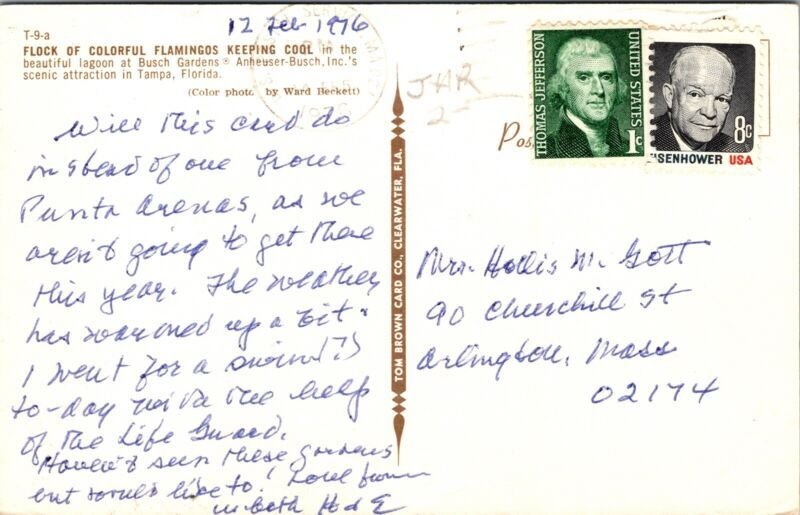 12 Feb 1976
T-9-a
FLOCK OF COLORFUL FLAMINGOS KEEPING COOL in the
beautiful lagoon at Busch Gardens® Anheuser-Busch, Inc.'s
scenic attraction in Tampa, Florida.
(Color photo by Ward Beckett)
Will this card do
instead of one from
Punta Arenas, as we
aren't going to get there
this year. The weather
has warmed up a bit.
I went for a swim(?)
to-day with the help
of the Life Guard.
Haven't seen these gardens
but would like to! Love from
us both H & E
TOM BROWN CARD CO., CLEARWATER, FLA.
JHR
2
Pos
THOMAS JEFFERSON
UNITED STATES
1c
8c
EISENHOWER USA
Mrs. Hollis M. Gott
90 Churchill St
Arlington, Mass
02174